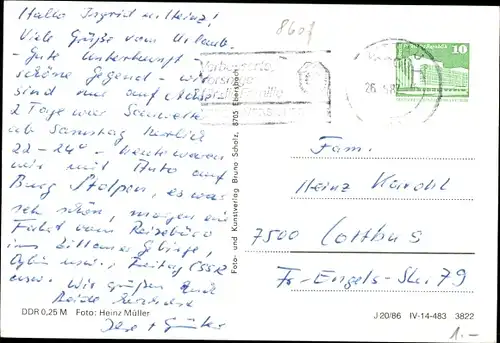 Hallo Ingrid u. Heinz!
Viele Grüße vom Urlaub.
- Gute Unterkunft
schöne Gegend - wir
sind nur auf Achse
2 Tage war
ab Samstag herrlich
22 - 24° - heute waren
wir mit Auto auf
Burg Stolpen, es war
sehr schön, morgen eine
Fahrt vom Reisebüro
ins Zittauer Gebirge
Oybin usw., Freitag ČSSR
usw. Wir grüßen Euch
Beide herzlichst
+ Günter
DDR 0,25 M Foto: Heinz Müller
Foto- und Kunstverlag Bruno Scholz, 8705 Ebersbach
8601
Verbesserte
Vorsorge
10
26
Fam.
Heinz
7500 Cottbus
Fr.-Engels-Str. 79
J 20/86 IV-14-483 3822
1.-